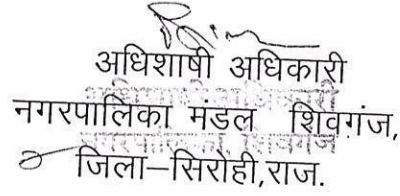 अधिशाषी अधिकारी
नगरपालिका मंडल शिवगंज,
जिला–सिरोही,राज.